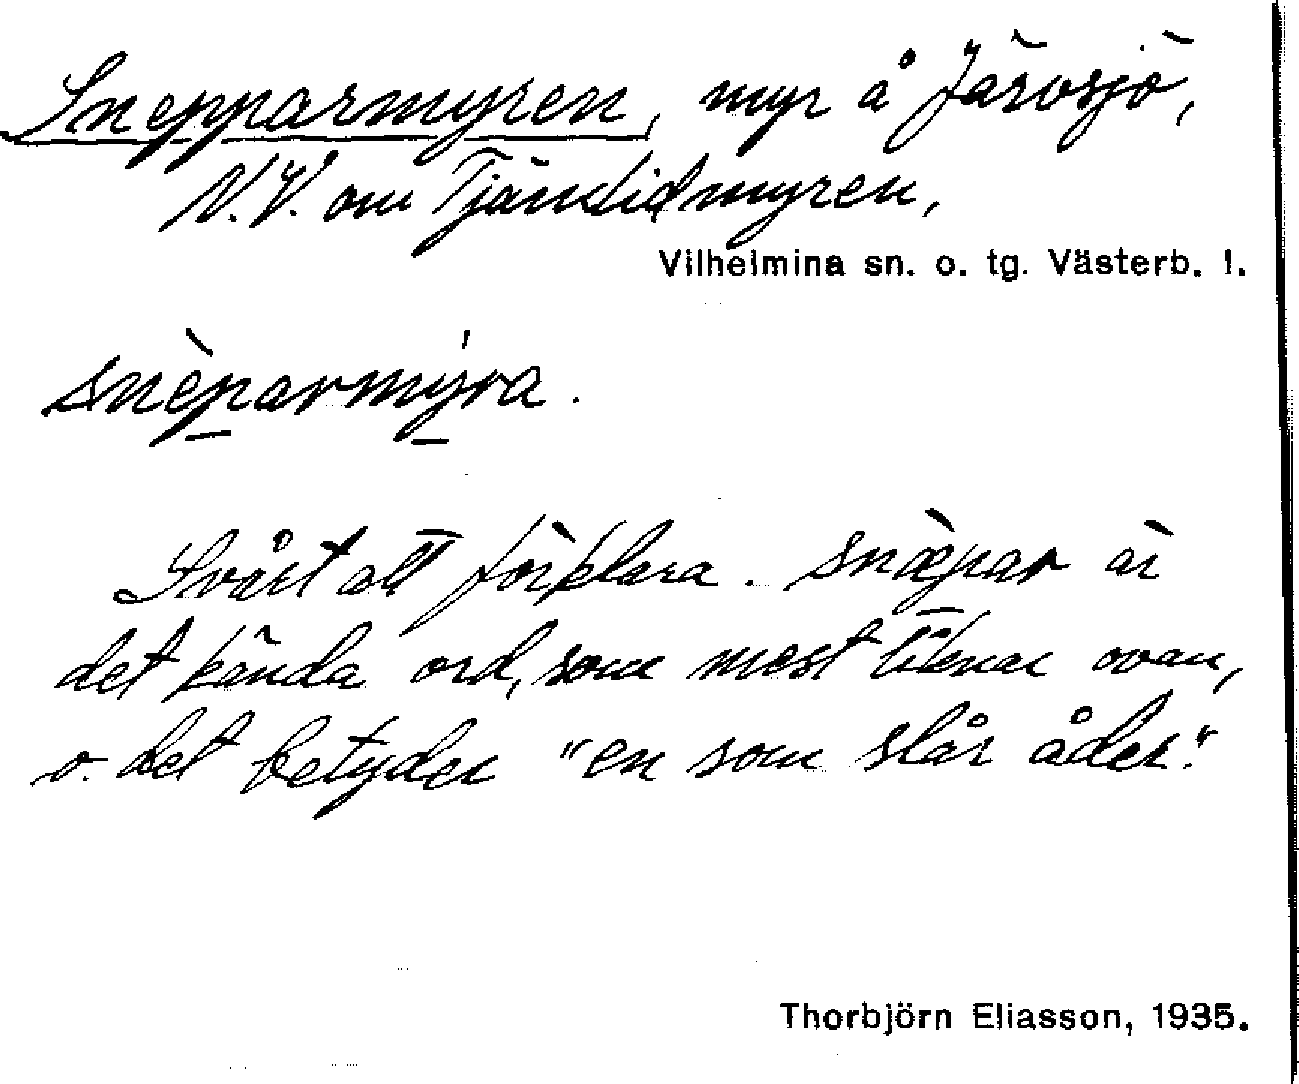 Snepparmyren, myr å Järvsjö,
N.V. om Tjärnlidmyren,
Vilhelmina sn. o. tg. Västerb. l.
snèparmýra.
Svårt att förklara. snæ̀par är
det kända ord, som mest liknar ovan,
o. det betyder "en som slår åder."
Thorbjörn Eliasson, 1935.